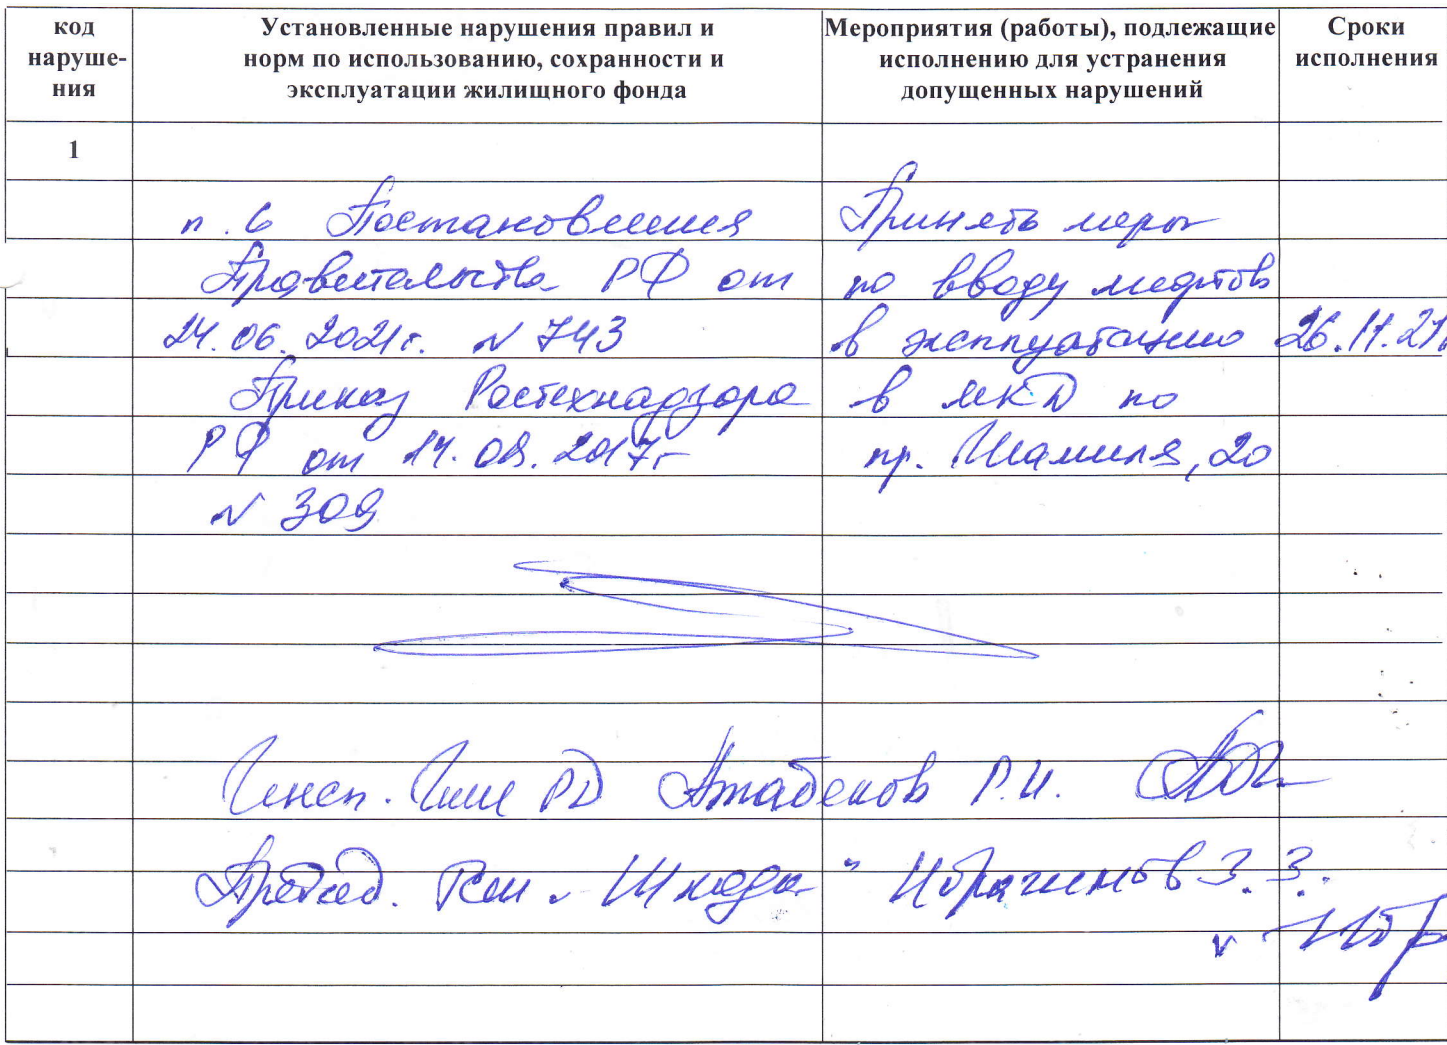 код наруше- ния
Установленные нарушения правил и норм по использованию, сохранности и эксплуатации жилищного фонда
Мероприятия (работы), подлежащие исполнению для устранения допущенных нарушений
Сроки исполнения
1
п. 6 Постановления
Правительства РФ от
24.06.2021г. N 743
Приказ Ростехнадзора
РФ от 14.08.2017г
N 309
Принять меры
по вводу лифтов
в эксплуатацию
в МКД по
пр. Шамиля, 20
26.11.21г
Инсп. РД Атабеков Р.И.
Председ. "Шкода" Ибрагимов З.З.